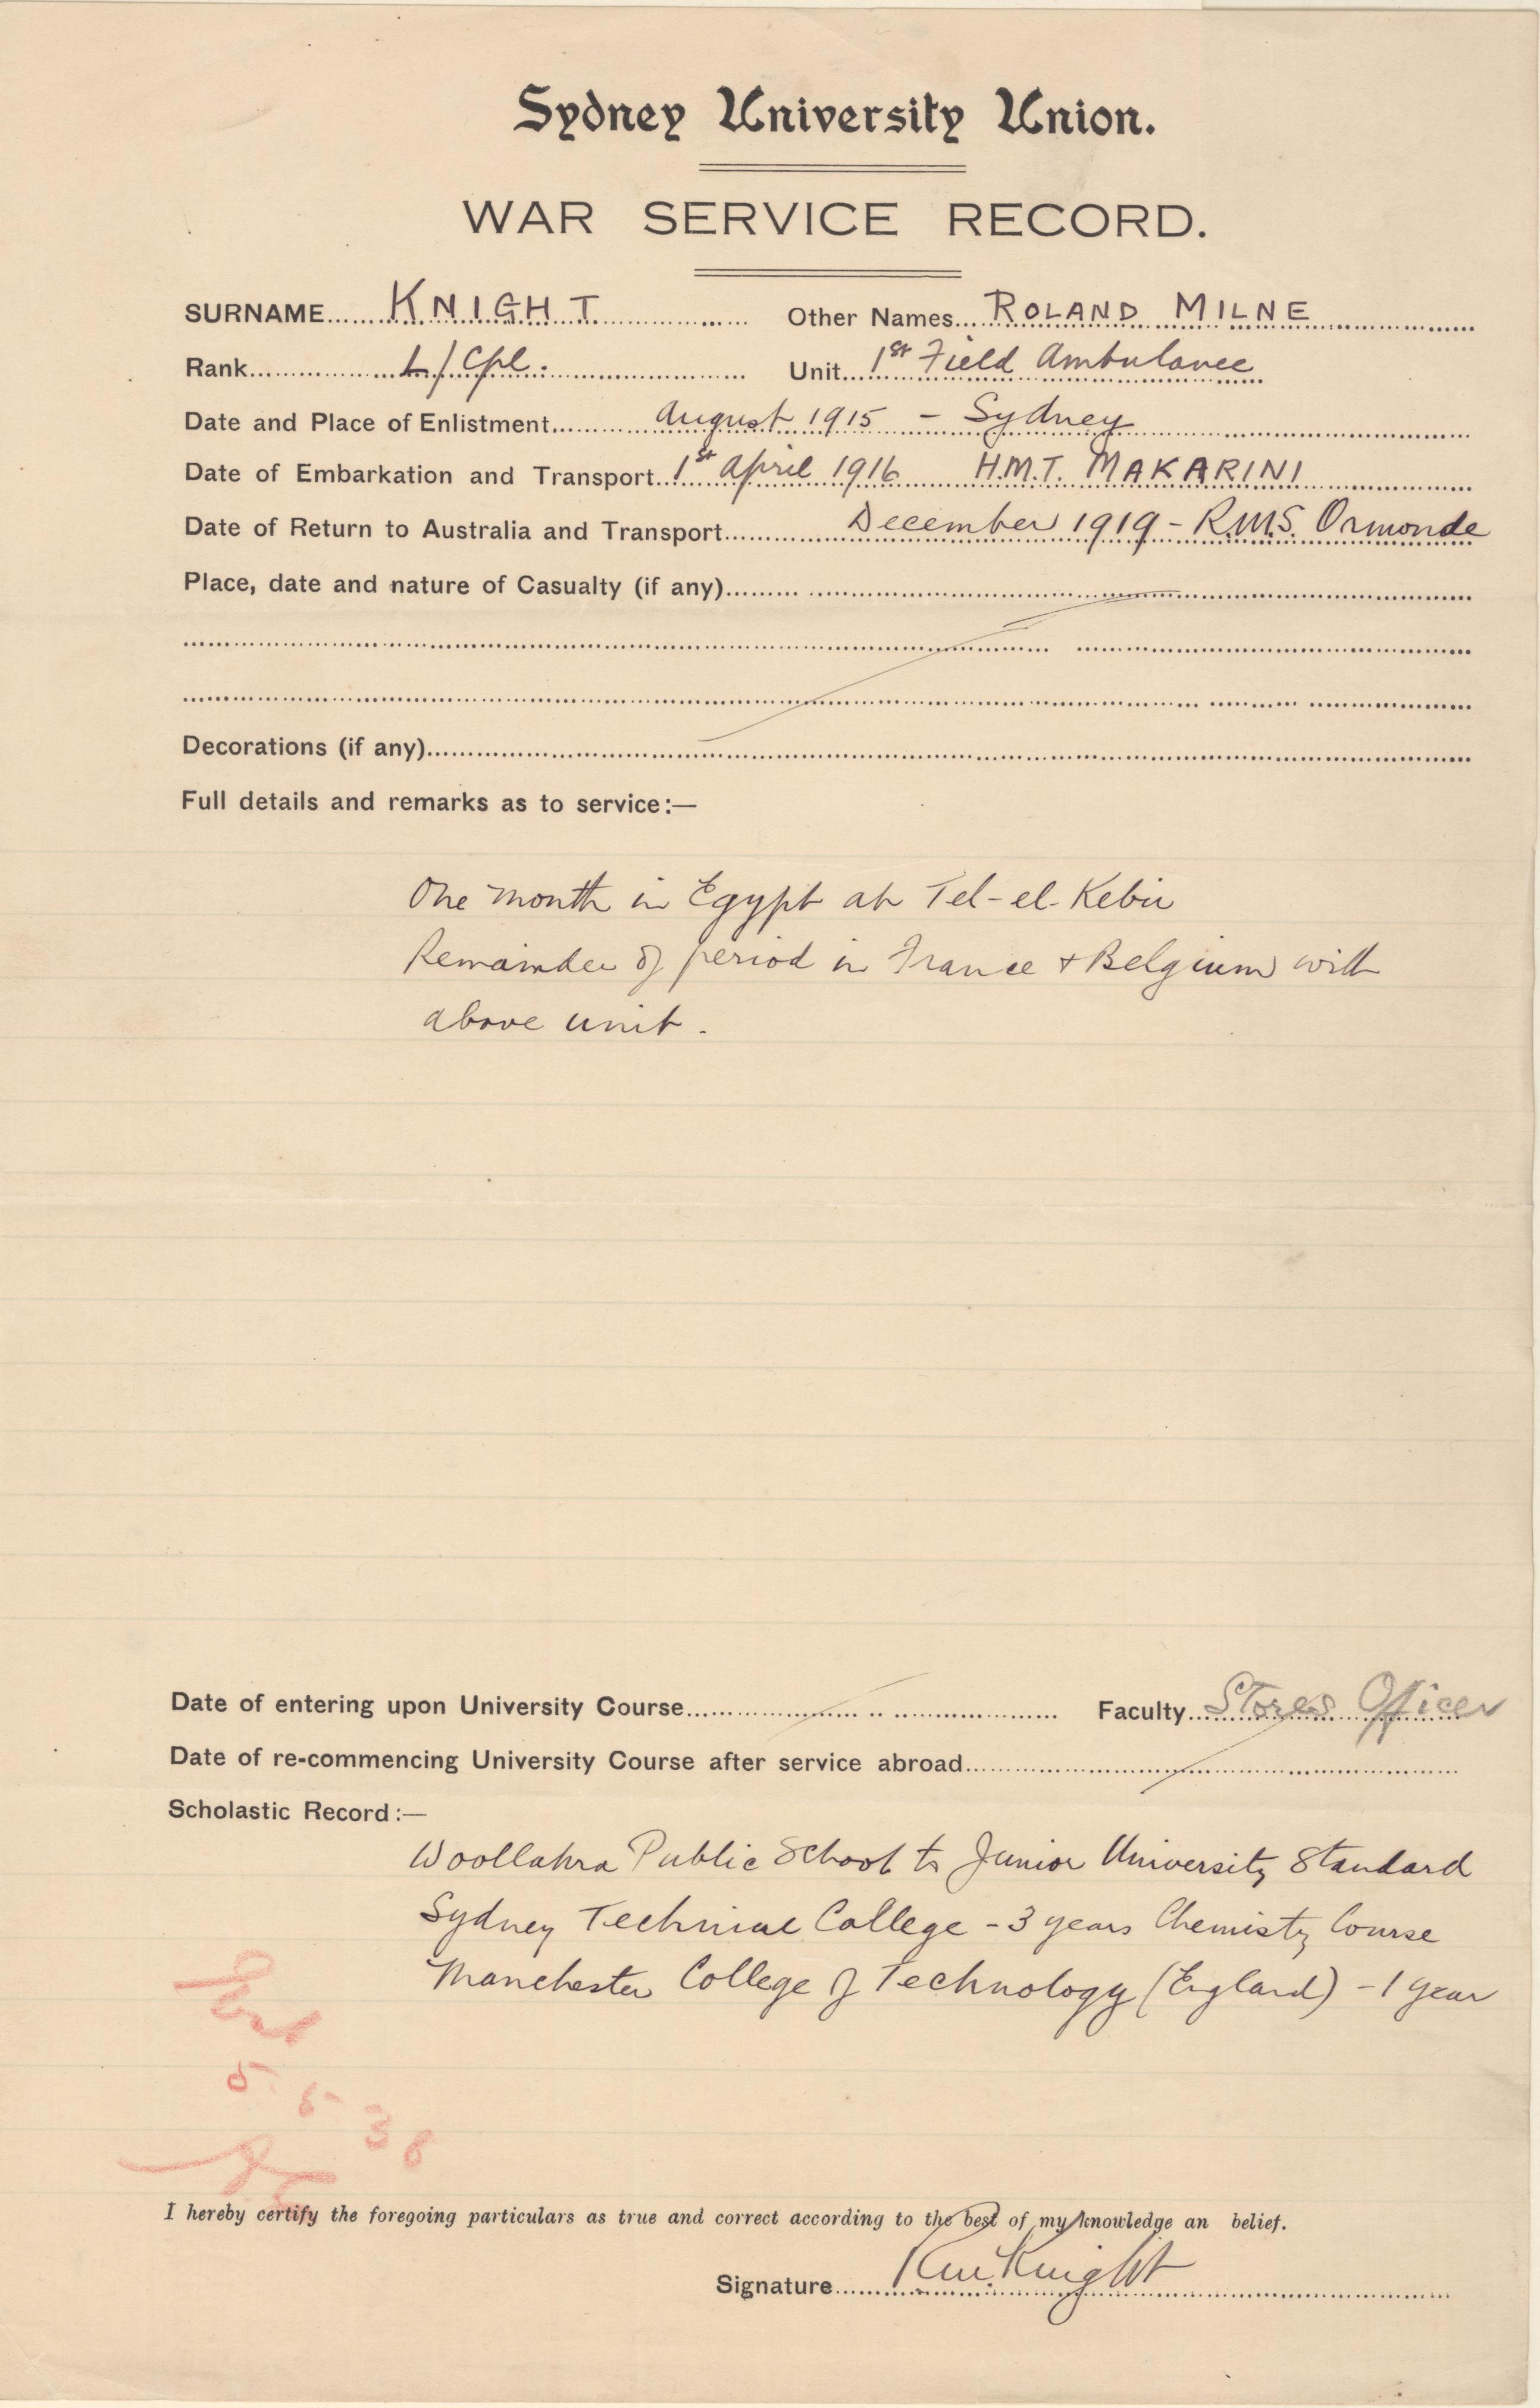 Sydney University Union.
WAR SERVICE RECORD.
SURNAME KNIGHT Other Names ROLAND MILNE
Rank L/Cpl. Unit 1st Field Ambulance
Date and Place of Enlistment August 1915 - Sydney
Date of Embarkation and Transport 1st April 1916 H.M.T. MAKARINI
Date of Return to Australia and Transport December 1919 - R.M.S. Ormonde
Place, date and nature of Casualty (if any)
Decorations (if any)
Full details and remarks as to service:—
One month in Egypt at Tel-el-Kebir
Remainder of period in France + Belgium with
above unit.
Date of entering upon University Course Faculty Stores Officer
Date of re-commencing University Course after service abroad
Scholastic Record:—
Woollahra Public School to Junior University Standard
Sydney Technical College - 3 years Chemistry Course
Manchester College of Technology (England) - 1 year
I hereby certify the foregoing particulars as true and correct according to the best of my knowledge an belief.
Signature R.M. Knight